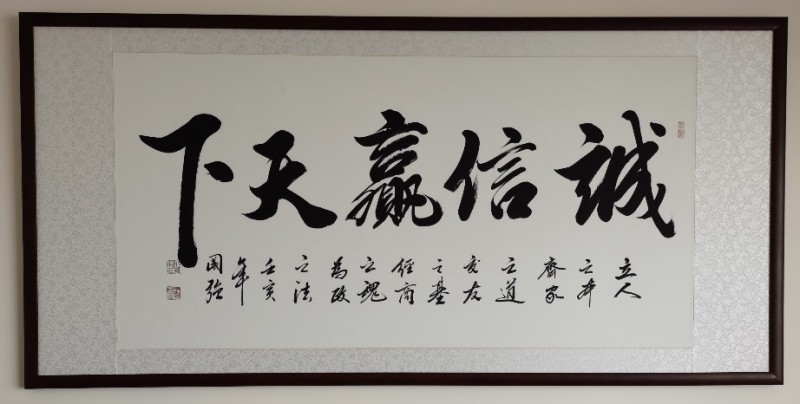 誠信贏天下
立人
之本
齊家
之道
交友
之基
經商
之魂
為政
之法
壬寅
年
國強